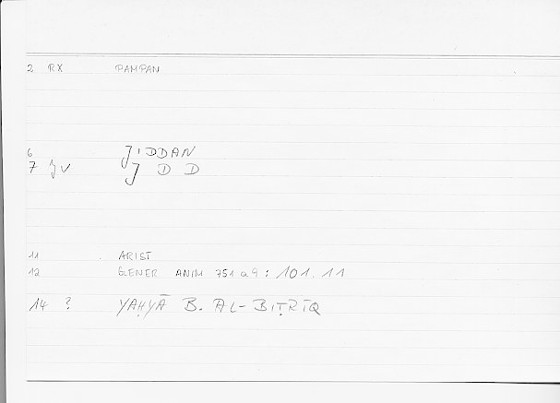 2 RX PAMPAN
6 JIDDAN
7 JV J D D
11 ARIST
12 GENER ANIM 751 a 9 : 101.11
14 ? YAḤYĀ B. AL-BIṬRĪQ